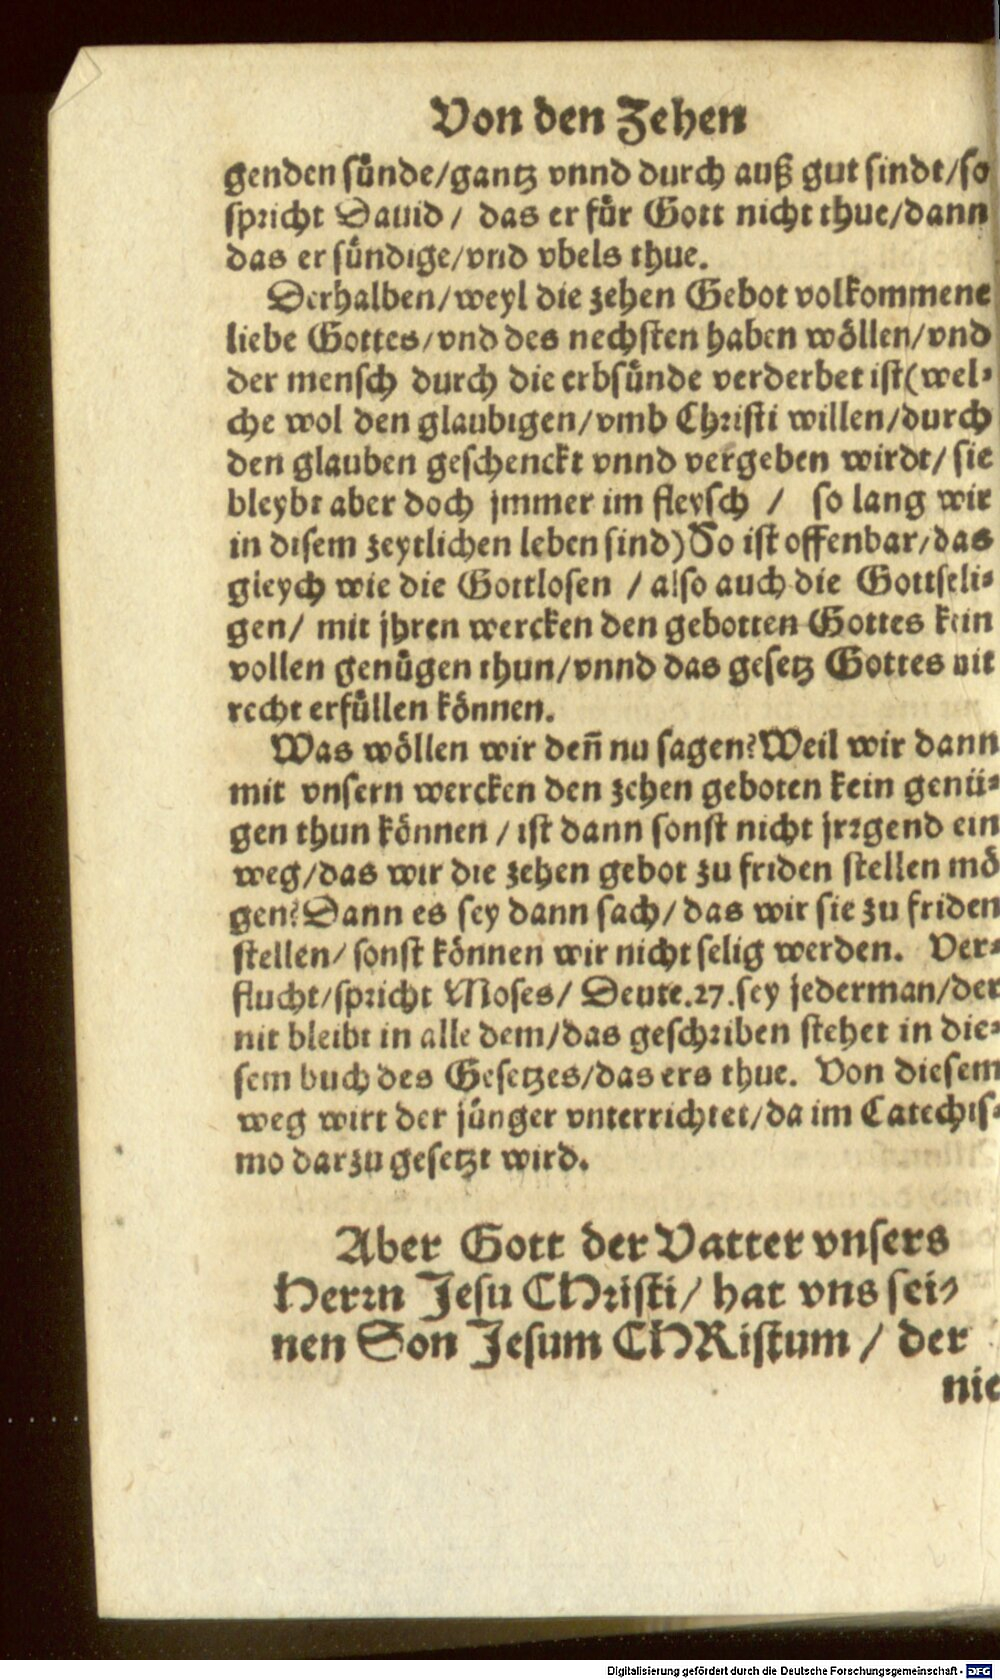 Von den Zehen
genden sünde/gantz vnnd durch auß gut sindt/so
spricht Dauid / das er für Gott nicht thue/dann
das er sündige/vnd vbels thue.
Derhalben/weyl die zehen Gebot volkommene
liebe Gottes/vnd des nechsten haben wöllen/vnd
der mensch durch die erbsünde verderbet ist(wel-
che wol den glaubigen/vmb Christi willen/durch
den glauben geschenckt vnnd vergeben wirdt/sie
bleybt aber doch jmmer im fleysch / so lang wir
in disem zeytlichen leben sind)So ist offenbar/das
gleych wie die Gottlosen / also auch die Gottseli-
gen/ mit jhren wercken den gebotten Gottes kein
vollen genügen thun/vnnd das gesetz Gottes nit
recht erfüllen können.
Was wöllen wir deñ nu sagen?Weil wir dann
mit vnsern wercken den zehen geboten kein genü-
gen thun können / ist dann sonst nicht jrrgend ein
weg/das wir die zehen gebot zu friden stellen mö
gen?Dann es sey dann sach/das wir sie zu friden
stellen/ sonst können wir nicht selig werden. Ver-
flucht/spricht Moses/ Deute.27.sey jederman/der
nit bleibt in alle dem/das geschriben stehet in die-
sem buch des Gesetzes/das ers thue. Von diesem
weg wirt der jünger vnterrichtet/da im Catechis-
mo darzu gesetzt wird.
Aber Gott der Vatter vnsers
Herrn Jesu CHristi/ hat vns sei-
nen Son Jesum CHRistum / der
nie
Digitalisierung gefördert durch die Deutsche Forschungsgemeinschaft - DFG